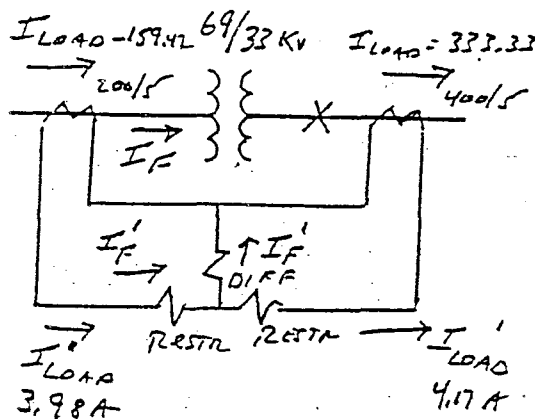 I_LOAD = 159.42 69/33 KV I_LOAD = 333.33
200/5 400/5
I_F
I_F' I_F'
DIFF
RESTR RESTR
I_LOAD' I_LOAD'
3.98A 4.17A